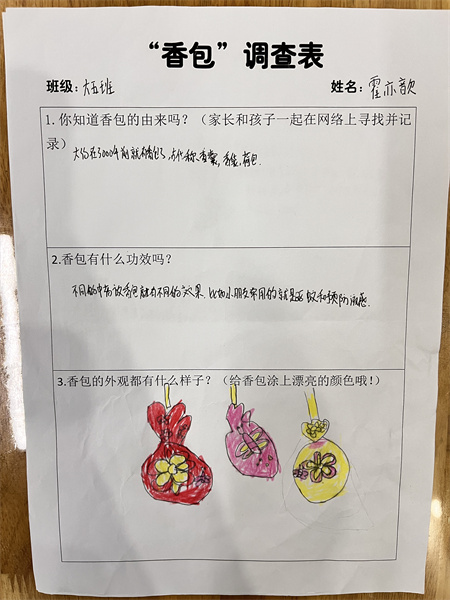 “香包”调查表
班级：大五班 姓名：霍亦歆
1. 你知道香包的由来吗？（家长和孩子一起在网络上寻找并记
录）
大约在3000年前就有香包了，古代称香囊，香袋，荷包。
2.香包有什么功效吗？
不同的中药放香包就有不同的效果，比如小朋友常用的就是驱蚊和预防流感。
3.香包的外观都有什么样子？（给香包涂上漂亮的颜色哦！）